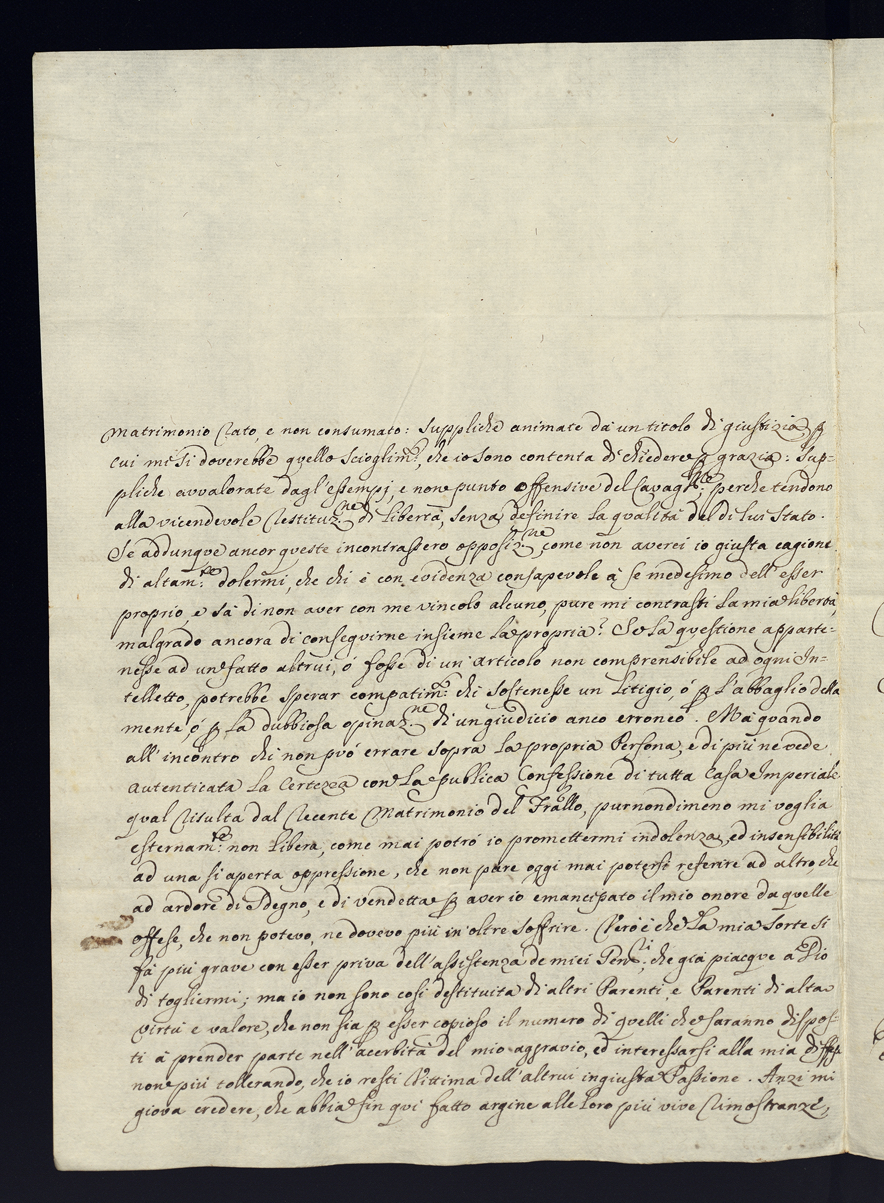 Matrimonio Rato, e non consumato: Suppliche animate da un titolo di giustizia p
cui mi si doverebbe quello scioglim.to, che io sono contenta di chiedere p grazia: Sup-
pliche avvalorate dagl'essempj, e non punto offensive del Cavag.re; perche tendono
alla vicendevole Restituz.ne di Libertà, senza definire la qualità del di lui Stato.
Se addunque ancor queste incontrassero opposiz.ne, come non averei io giusta cagione
di altam.te dolermi, che chi è con evidenza consapevole à se medesimo dell'esser
proprio, e sà di non aver con me vincolo alcuno, pure mi contrasti la mia libertà,
malgrado ancora di conseguirne insieme la propria? Se la questione apparte-
nesse ad un fatto altrui, ó fosse di un'articolo non comprensibile ad ogni In-
telletto, potrebbe sperar compatim.to chi sostenesse un Litigio, ó p l'abbaglio della
mente ó p la dubbiosa opinaz.ne di un giudicio anco erroneo. Mà quando
all'incontro chi non può errare sopra la propria Persona, e di più ne vede
autenticata la Certezza con la publica Confessione di tutta Casa Imperiale
qual Risulta dal Recente Matrimonio del Frãllo, purnondimeno mi voglia
esternam.te non libera, come mai potrò io promettermi indolenza, ed insensibilità
ad una sì aperta oppressione, che non pare oggi mai potersi referire ad altro che
ad ardore di sdegno, e di vendetta p aver io emancipato il mio onore da quelle
offese, che non potevo, ne dovevo più in oltre soffrire. Vero è che la mia sorte si
fà più grave con esser priva dell'assistenza de miei Gen.ri, che già piacque à Dio
di togliermi; ma io non sono così destituita di altri Parenti, e Parenti di alta
virtù e valore, che non sia p esser copioso il numero di quelli che saranno dispos-
ti à prender parte nell'acerbità del mio aggravio, ed interessarsi alla mia diffesa
non più tollerando, che io resti Vittima dell'altrui ingiusta Passione. Anzi mi
giova credere, che abbia fin qui fatto argine alle loro più vive Rimostranze,